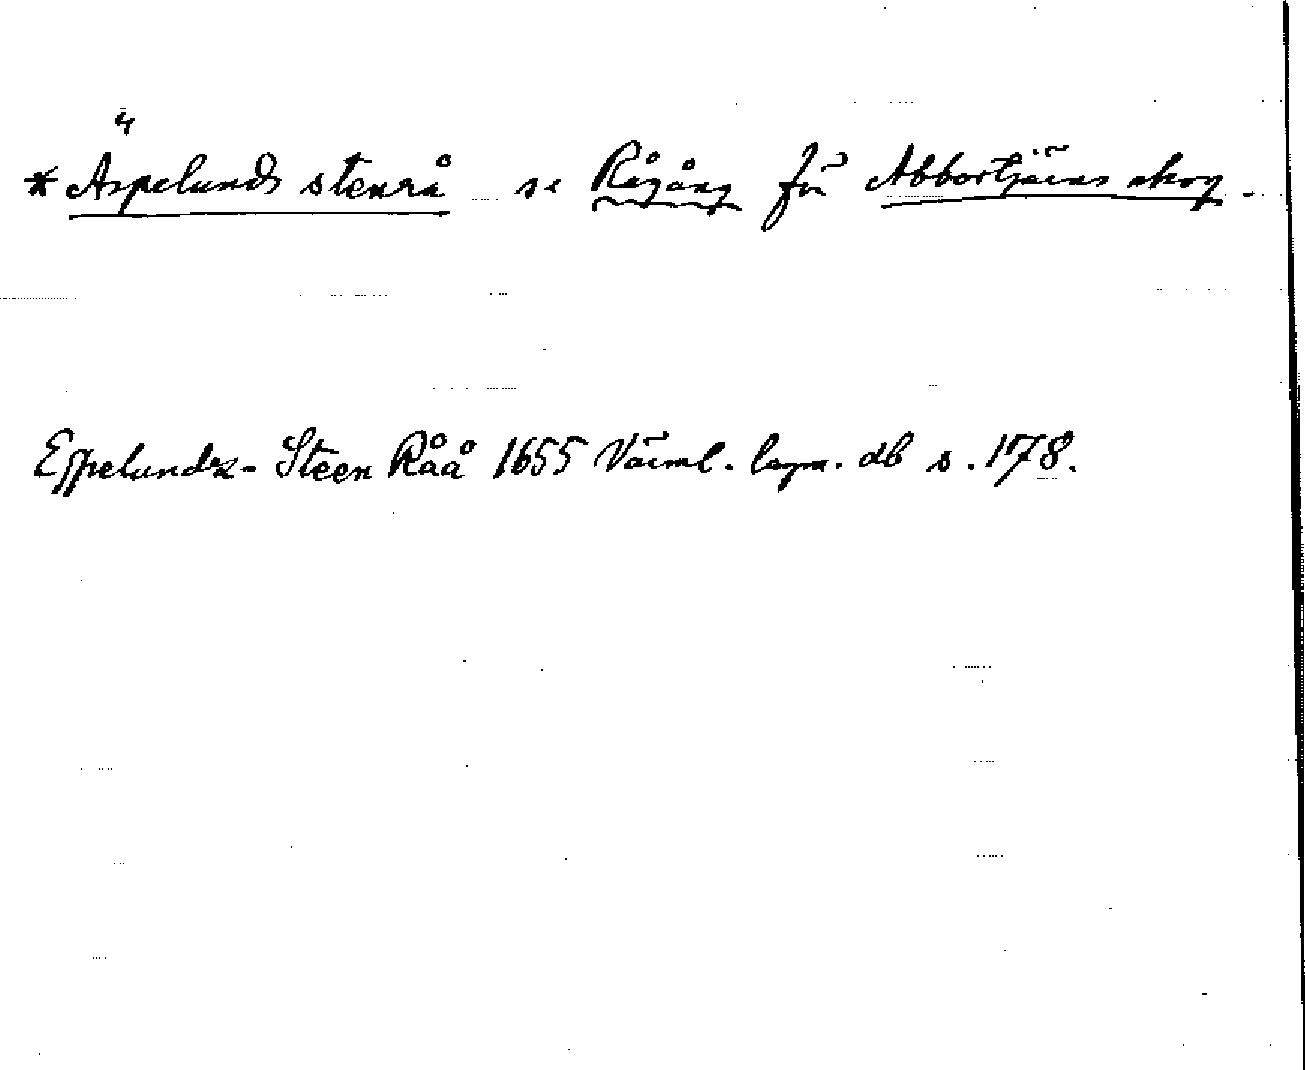 * Äspelunds stenrå se Rågång för Abbortjärns skog.
Espelundz- Steen Råå 1655 Värml. lagm. db s. 178.